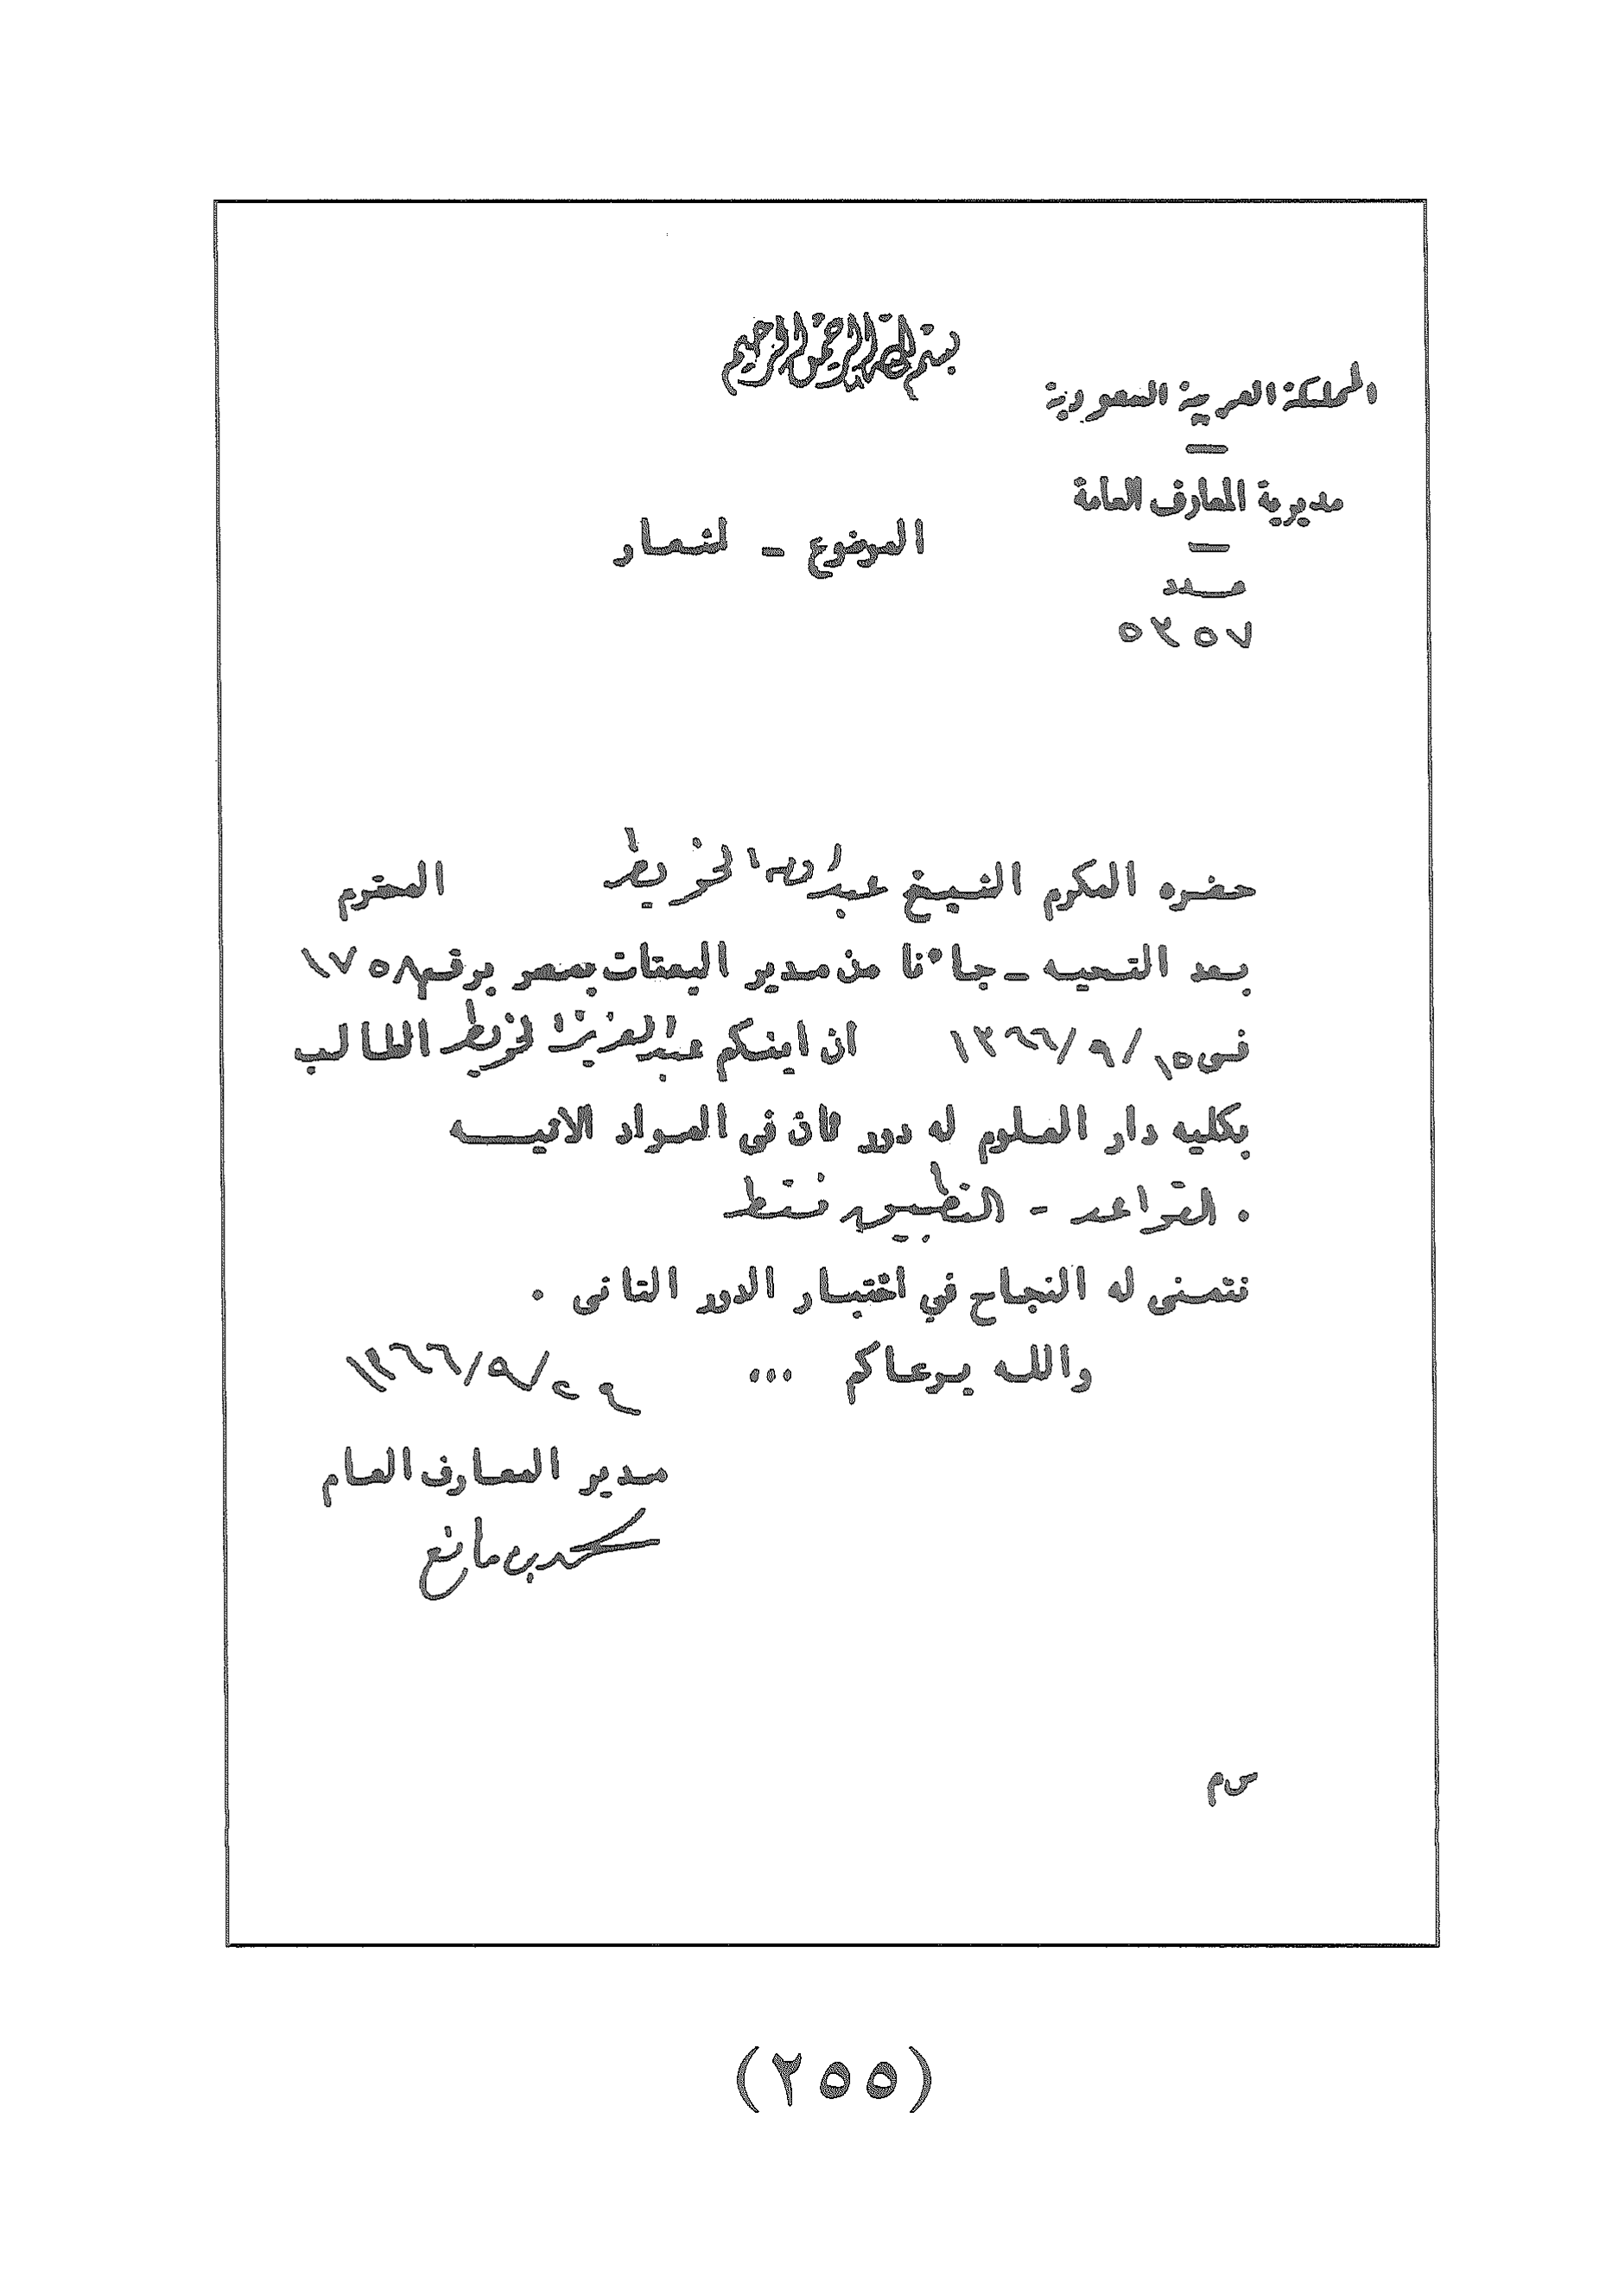 بسم الله الرحمن الرحيم
المملكة العربية السعودية
مديرية المعارف العامة
الموضوع - اشعار
عدد
٥٣٥٧
حضره المكرم الشيخ عبدالله الخريط المحترم
بعد التحيه - جاءنا من مدير البعثات بمصر برقم ١٧٥٨
فى ١٥/٩/١٣٦٦ ان ابنكم عبدالعزيز الخريط الطالب
بكليه دار العلوم له دور ثان فى المواد الاتيه
. القواعد - التطبيق فقط
نتمنى له النجاح في اختبار الدور الثانى .
والله يرعاكم ... ٢٩/٩/١٣٦٦
مدير المعارف العام
محمد بن مانع
س م
(٢٥٥)